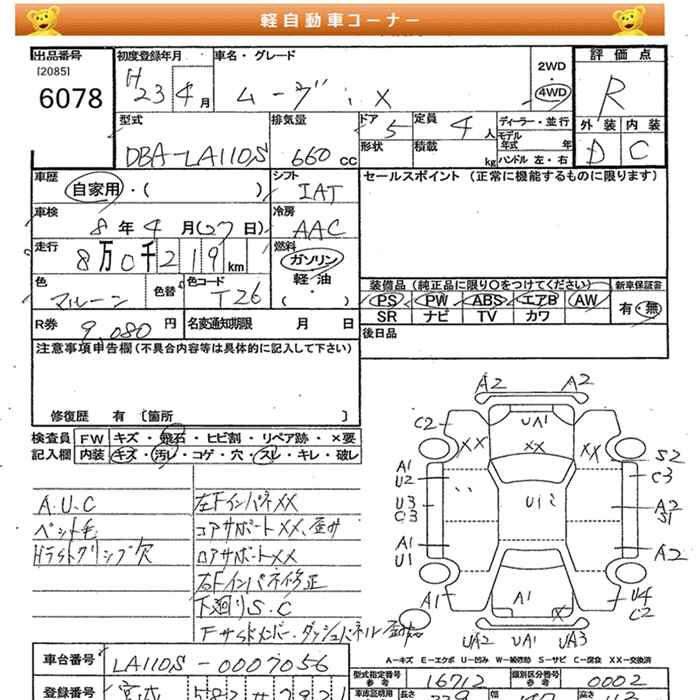 軽自動車コーナー
出品番号
[2085]
6078
初度登録年月
H23 4月
車名・グレード
ムーヴ X
2WD
・
4WD
評価点
R
外装 内装
D C
型式
DBA-LA110S
排気量
660 cc
ドア
5
形状
定員
4人
積載
kg
ディーラー・並行
モデル年式 年
ハンドル 左・右
車歴
自家用・( )
シフト
IAT
車検
8年4月(27日)
冷房
AAC
走行
8万0千219km
燃料
ガソリン
軽油
・( )
色
マルーン
色替
色コード
T26
R券 9,080円
名変通知期限 月 日
セールスポイント(正常に機能するものに限ります)
装備品(純正品に限り○をつけてください)
PS PW ABS エアB AW
SR ナビ TV カワ
新車保証書
有・無
後日品
注意事項申告欄(不具合内容等は具体的に記入して下さい)
修復歴 有〔箇所 〕
検査員記入欄
FW キズ・飛石・ヒビ割・リペア跡・×要
内装 キズ・汚レ・コゲ・穴・スレ・キレ・破レ
A.U.C
ペット毛
左Fインパネ××
コアサポート××、歪み
ロアサポート××
右Fインパネ修正
下廻りS.C
A2 A2
C2 UA1
×× ×× ××
S2
A1 C3
U2
U3 U12 A2
C3 S1
A1 A2
U1
A1 A1 × U4
C2
UA2 UA1 UA3
A-キズ E-エクボ U-凹み W-補修跡 S-サビ C-腐食 XX-交換済
車台番号 LA110S-0007056
型式指定番号 参考 16712
類別区分番号 参考 0002
登録番号 宮城 582
車庫証明用 長さ 339 幅 高さ